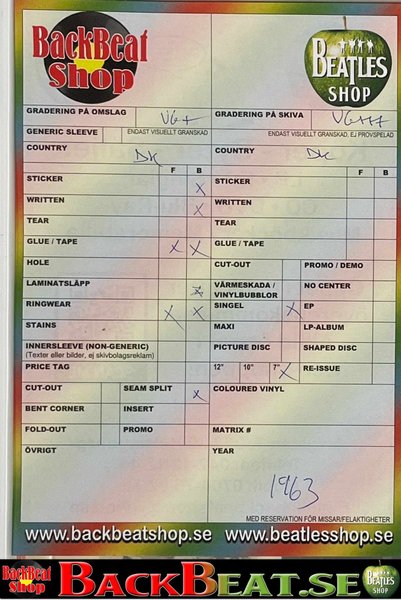 BackBeat Shop
BEATLES SHOP
GRADERING PÅ OMSLAG VG+
GRADERING PÅ SKIVA VG+++
GENERIC SLEEVE ENDAST VISUELLT GRANSKAD
ENDAST VISUELLT GRANSKAD, EJ PROVSPELAD
COUNTRY DK
COUNTRY DK
F B
F B
STICKER X
STICKER
WRITTEN X
WRITTEN
TEAR
TEAR
GLUE / TAPE X X
GLUE / TAPE
HOLE
CUT-OUT PROMO / DEMO
LAMINATSLÄPP X
VÄRMESKADA / VINYLBUBBLOR
NO CENTER
RINGWEAR X X
SINGEL X EP
STAINS
MAXI LP-ALBUM
INNERSLEEVE (NON-GENERIC)
(Texter eller bilder, ej skivbolagsreklam)
PICTURE DISC SHAPED DISC
PRICE TAG
12" 10" 7" X RE-ISSUE
CUT-OUT SEAM SPLIT X
COLOURED VINYL
BENT CORNER INSERT
FOLD-OUT PROMO
MATRIX #
ÖVRIGT
YEAR
1963
MED RESERVATION FÖR MISSAR/FELAKTIGHETER
www.backbeatshop.se www.beatlesshop.se
BackBeat Shop
BACKBEAT.SE
BEATLES SHOP